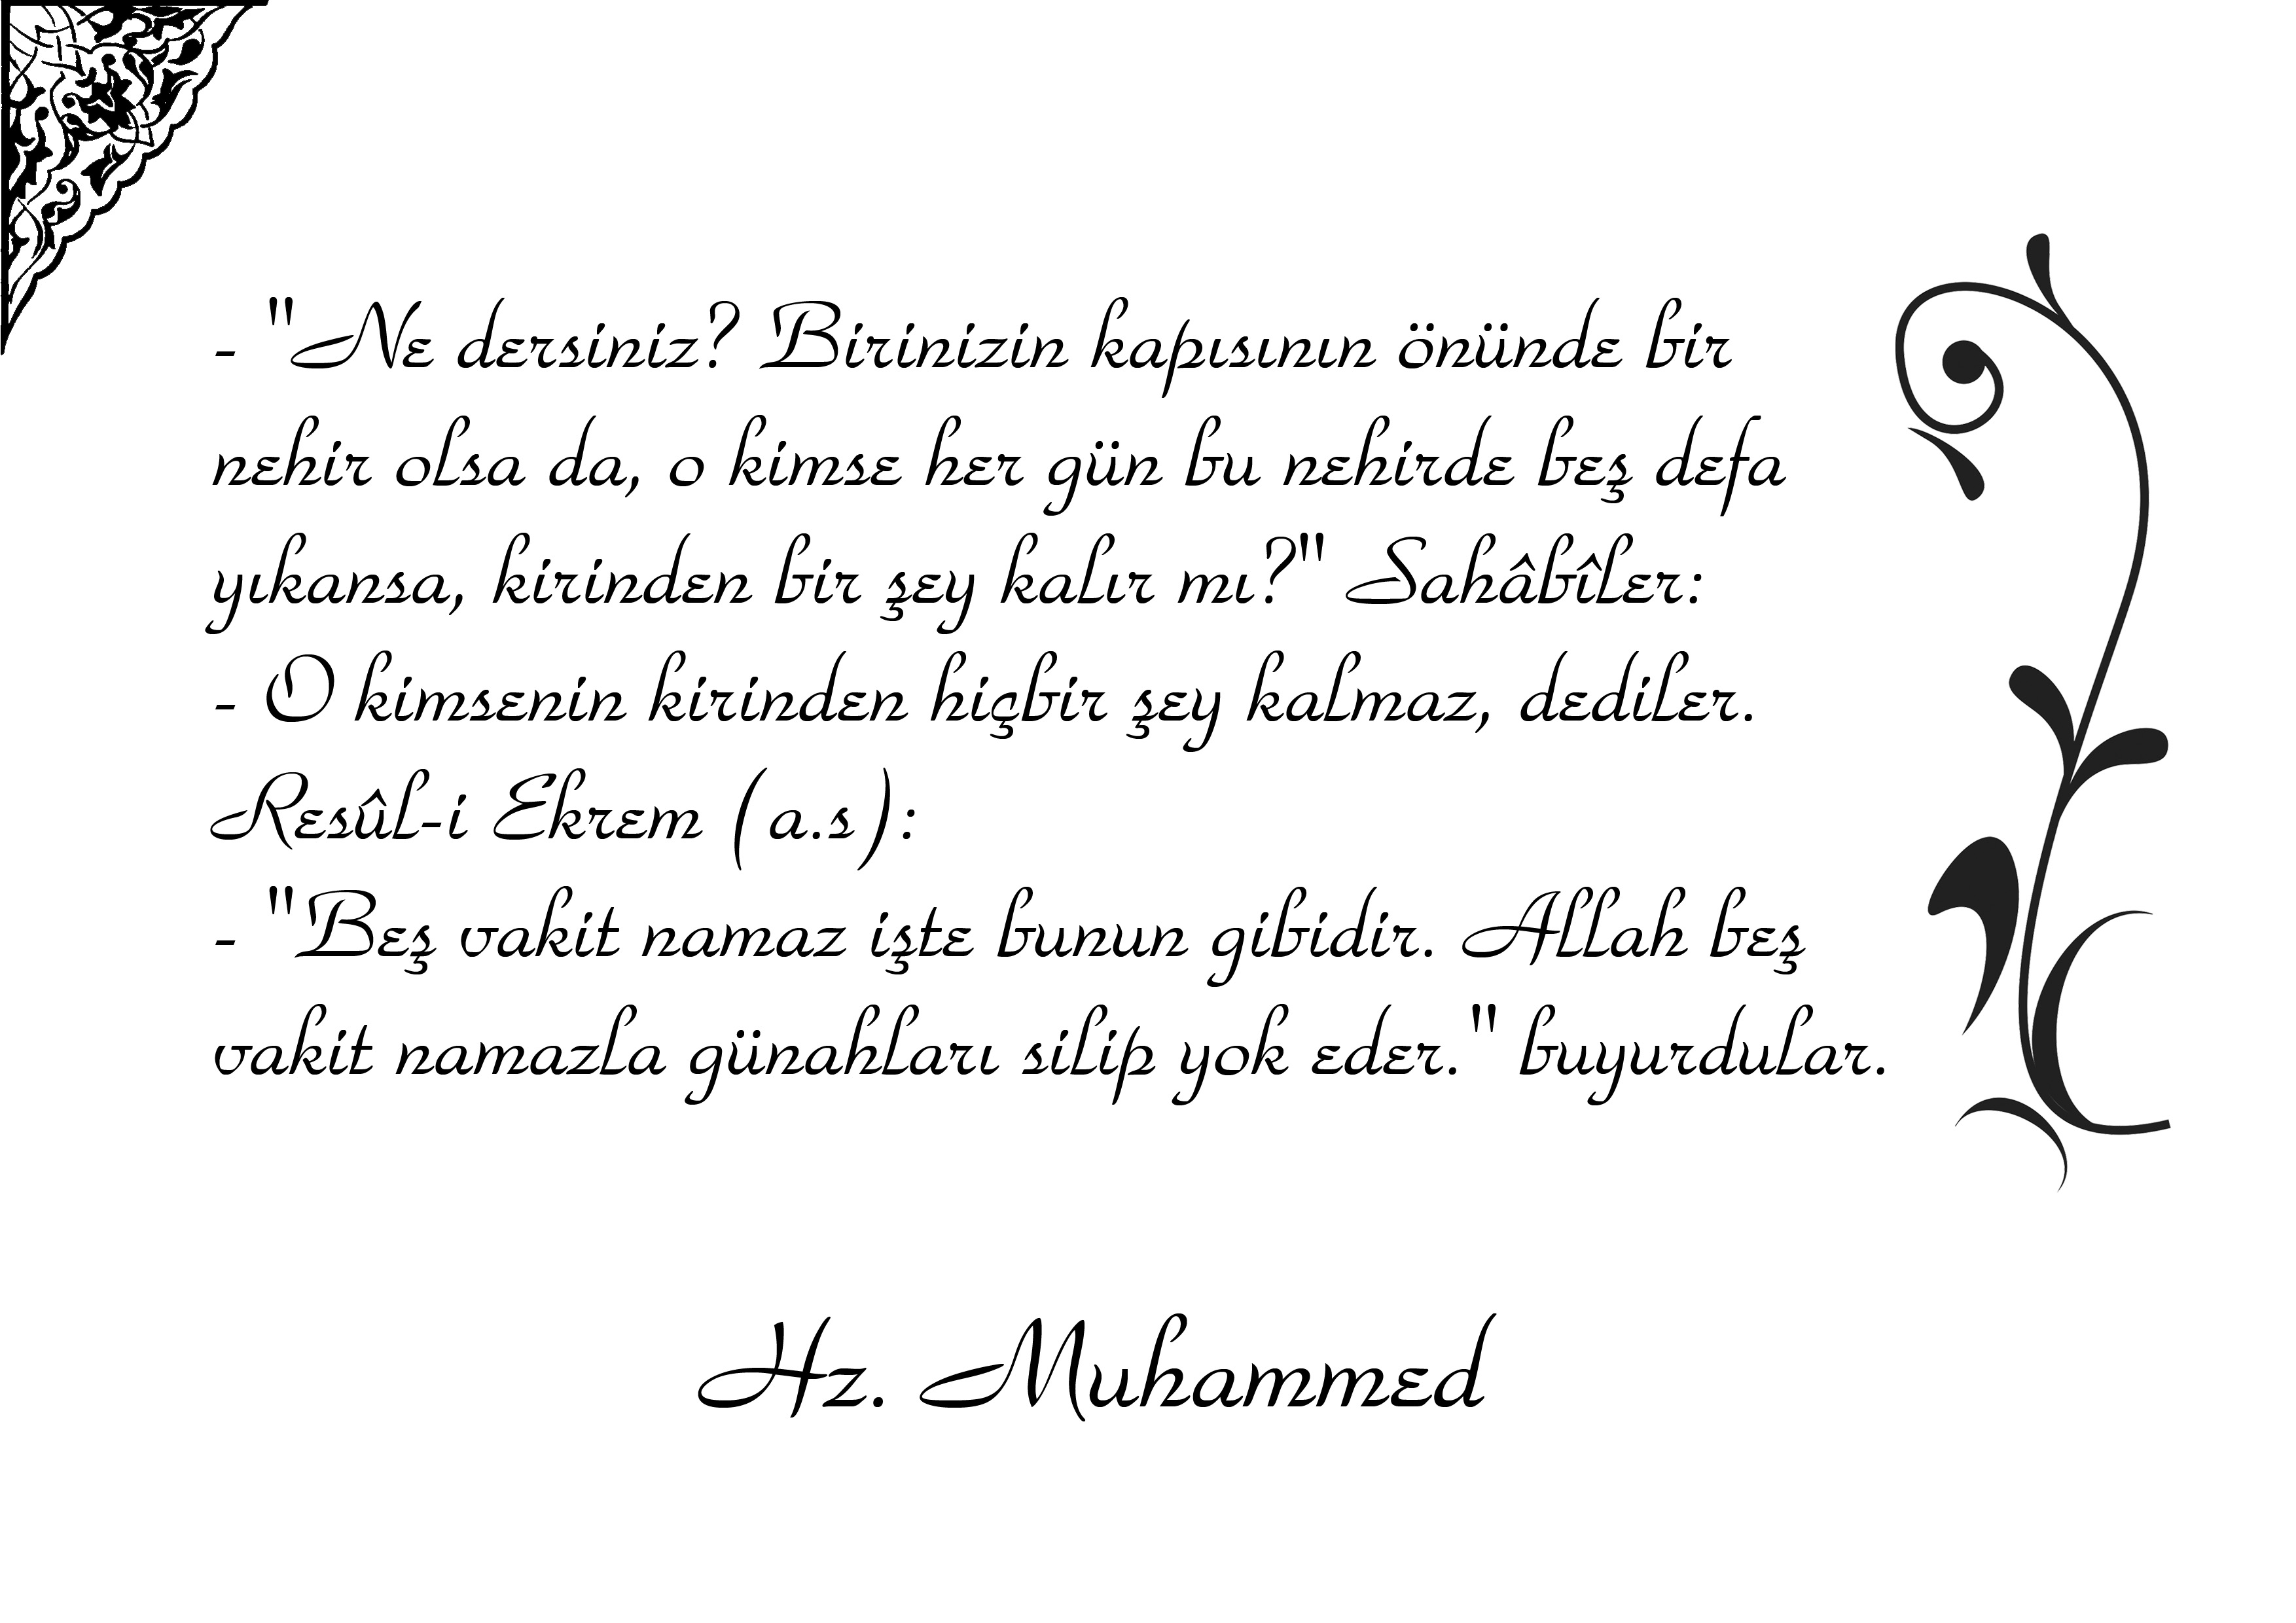 - "Ne dersiniz? Birinizin kapısının önünde bir
nehir olsa da, o kimse her gün bu nehirde beş defa
yıkansa, kirinden bir şey kalır mı?" Sahâbîler:
- O kimsenin kirinden hiçbir şey kalmaz, dediler.
Resûl-i Ekrem (a.s):
- "Beş vakit namaz işte bunun gibidir. Allah beş
vakit namazla günahları silip yok eder." buyurdular.
Hz. Muhammed